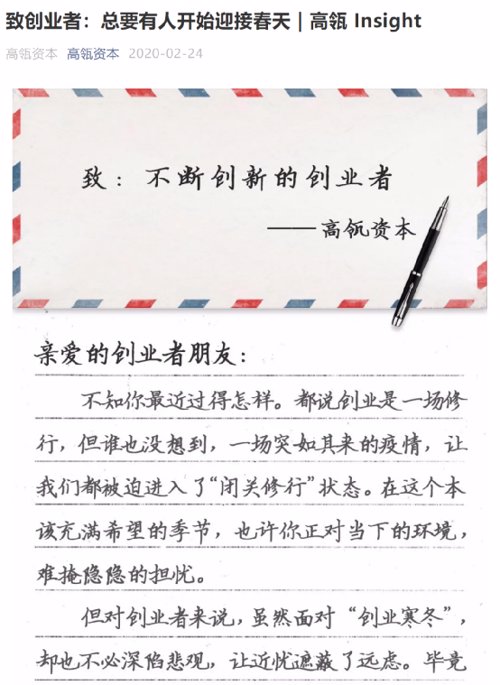 致创业者：总要有人开始迎接春天 | 高瓴 Insight
高瓴资本 高瓴资本 2020-02-24
致：不断创新的创业者
——高瓴资本
亲爱的创业者朋友：
不知你最近过得怎样。都说创业是一场修
行，但谁也没想到，一场突如其来的疫情，让
我们都被迫进入了“闭关修行”状态。在这个本
该充满希望的季节，也许你正对当下的环境，
难掩隐隐的担忧。
但对创业者来说，虽然面对“创业寒冬”，
却也不必深陷悲观，让近忧遮蔽了远虑。毕竟